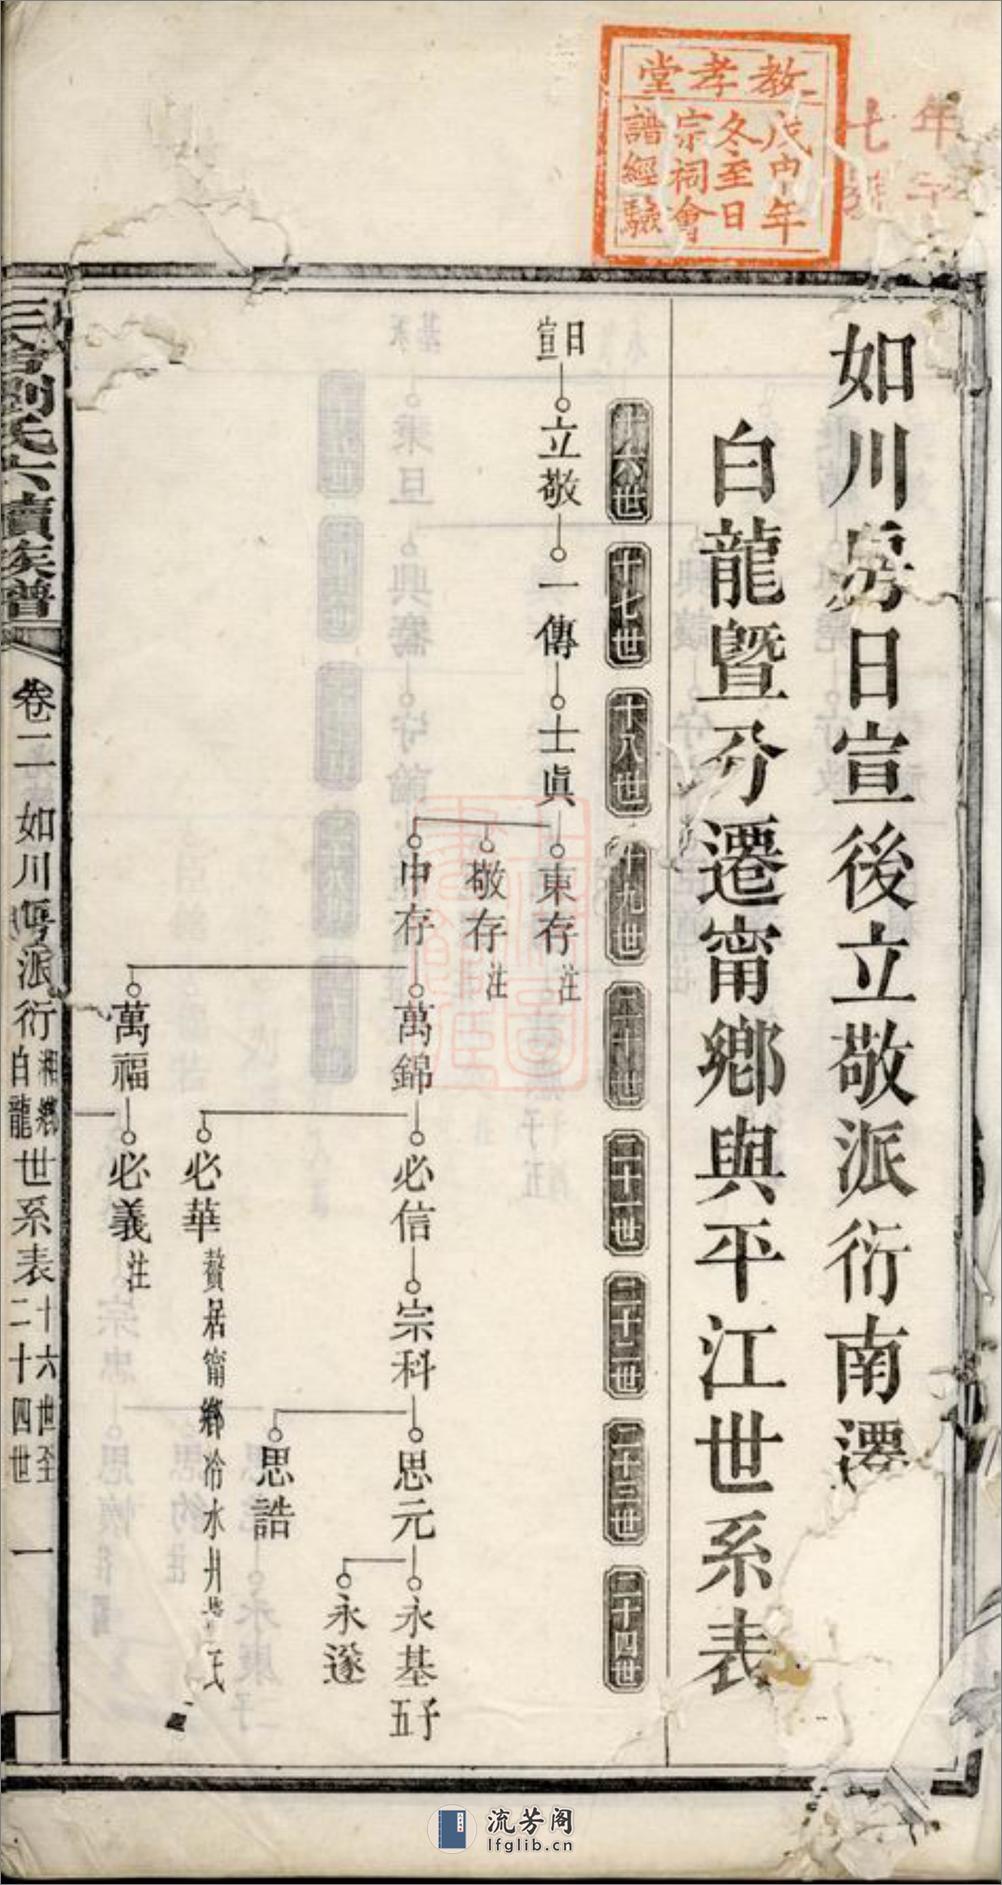 教孝堂
戊申年
冬至日
宗祠會
譜經驗
年
七
如川房日宣後立敬派衍南遷
白龍暨分遷甯鄉與平江世系表
十六世 十七世 十八世 十九世 二十世 二十一世 二十二世 二十三世 二十四世
日宣 立敬 一傳 士眞 東存 注
敬存 注
申存 萬錦 必信 宗科 思元 永基 五子
永遂
思誥
必華 贅居甯鄉冷水井 氏
萬福 必義 注
劉氏六續族譜 卷二 如川房派衍湘鄉白龍世系表 十六世至二十四世 一
流芳阁
lfglib.cn